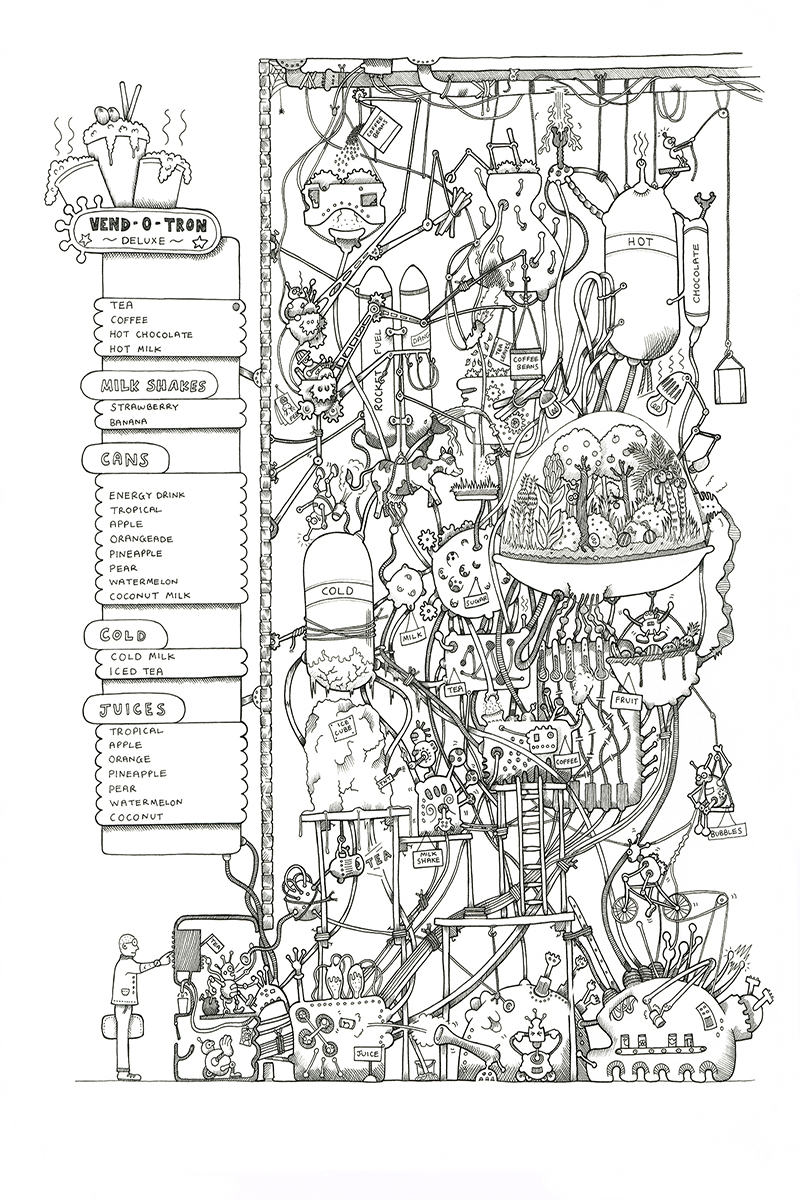 VEND-O-TRON
~ DELUXE ~
TEA
COFFEE
HOT CHOCOLATE
HOT MILK
MILK SHAKES
STRAWBERRY
BANANA
CANS
ENERGY DRINK
TROPICAL
APPLE
ORANGEADE
PINEAPPLE
PEAR
WATERMELON
COCONUT MILK
COLD
COLD MILK
ICED TEA
JUICES
TROPICAL
APPLE
ORANGE
PINEAPPLE
PEAR
WATERMELON
COCONUT
COFFEE
BEANS
HOT
CHOCOLATE
ROCKET FUEL
COFFEE
BEANS
COLD
SUGAR
MILK
TEA
FRUIT
ICE
CUBE
COFFEE
BUBBLES
MILK
SHAKE
TEA
TEA
JUICE